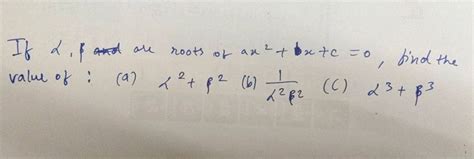 If α, β are roots of ax² + bx + c = 0, find the
value of : (a) α² + β² (b) 1/α²β² (C) α³ + β³